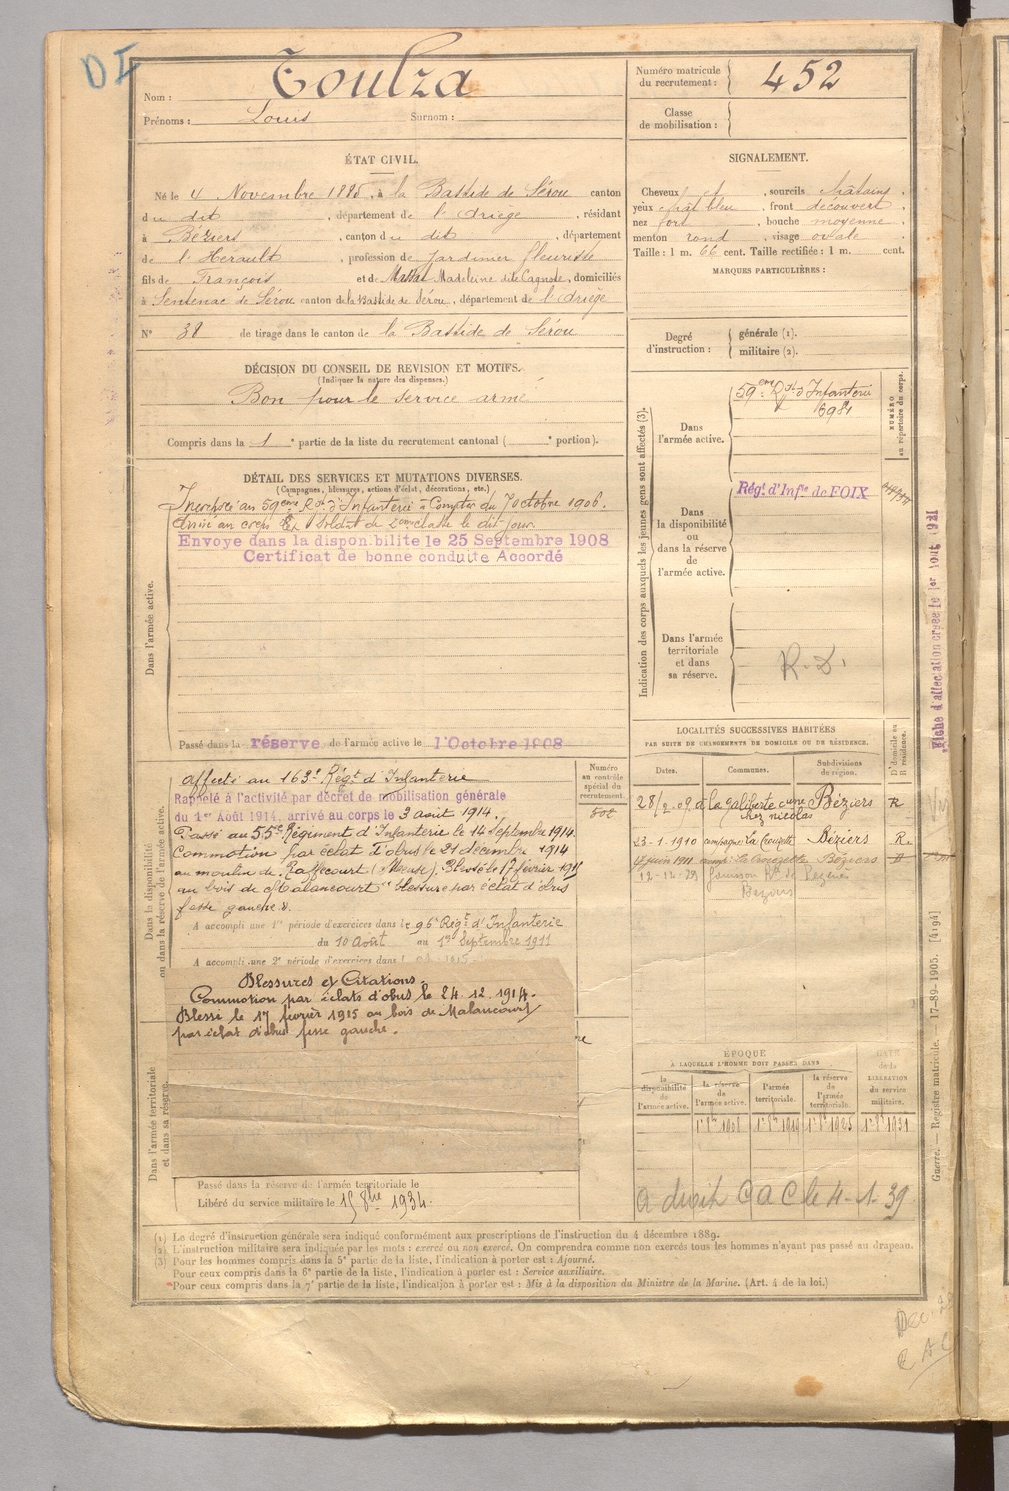 DI
Nom : Toulza
Prénoms : Louis Surnom :
Numéro matricule du recrutement : 452
Classe de mobilisation :
ÉTAT CIVIL.
Né le 4 Novembre 1885, à la Bastide de Sérou canton
du dit, département de l'Ariège, résidant
à Béziers, canton du dit, département
de l'Herault, profession de Jardinier fleuriste
fils de François et de Madeleine dite Cagnole, domiciliés
à Sentenac de Sérou canton de la Bastide de Sérou, département de l'Ariège
N° 38 de tirage dans le canton de la Bastide de Sérou
SIGNALEMENT.
Cheveux et, sourcils châtains.
yeux chât bleu, front découvert,
nez fort, bouche moyenne
menton rond, visage ovale.
Taille : 1 m. 66 cent. Taille rectifiée : 1 m. cent.
MARQUES PARTICULIÈRES :
Degré d'instruction : générale (1).
militaire (2).
DÉCISION DU CONSEIL DE REVISION ET MOTIFS.
(Indiquer la nature des dispenses.)
Bon pour le service armé
Compris dans la 1e partie de la liste du recrutement cantonal ( e portion).
DÉTAIL DES SERVICES ET MUTATIONS DIVERSES.
(Campagnes, blessures, actions d'éclat, décorations, etc.)
Dans l'armée active.
Incorporé au 59ème Rgt d'Infanterie à Compter du 7 octobre 1906.
Arrivé au corps et Soldat de 2eme classe le dit jour.
Envoye dans la disponibilite le 25 Septembre 1908
Certificat de bonne conduite Accordé
Passé dans la réserve de l'armée active le 1'Octobre 1908
Dans la disponibilité ou dans la réserve de l'armée active.
Affecté au 163e Régt d'Infanterie
Rappelé à l'activité par décret de mobilisation générale
du 1er Août 1914, arrivé au corps le 3 août 1914.
Passé au 55e Régiment d'Infanterie le 14 Septembre 1914.
Commotion par éclat d'obus le 21 decembre 1914
au moulin de Raffecourt (Meuse). Blessé le 17 février 1915
au bois de Malancourt "blessure par éclat d'obus
fesse gauche".
A accompli une 1re période d'exercices dans le 96e Régt d'Infanterie
du 10 Août au 1er Septembre 1911
A accompli une 2e période d'exercices dans l
Blessures et Citations.
Commotion par éclats d'obus le 24.12.1914.
Blessé le 17 février 1915 au bois de Malancourt
par éclat d'obus fesse gauche.
Dans l'armée territoriale et dans sa réserve.
Passé dans la réserve de l'armée territoriale le
Libéré du service militaire le 15 8bre 1934.
Numéro au contrôle spécial du recrutement.
Indication des corps auxquels les jeunes gens sont affectés (3).
Dans l'armée active.
59eme Rgt d'Infanterie
6981
NUMÉRO au répertoire du corps.
Dans la disponibilité ou dans la réserve de l'armée active.
Régt. d'Infie de FOIX
Dans l'armée territoriale et dans sa réserve.
R.D.
Fiche d'affectation créée le 1er Août 1921
LOCALITÉS SUCCESSIVES HABITÉES
PAR SUITE DE CHANGEMENTS DE DOMICILE OU DE RÉSIDENCE.
Dates. Communes. Subdivisions de région. D domicile ou R résidence.
28/2.09 Béziers R
chez nicolas
23-1-1910 campagne La Crouzette Béziers R.
4 juin 1911 Béziers
12-12-29
ÉPOQUE
À LAQUELLE L'HOMME DOIT PASSER DANS
la disponibilité de l'armée active.
la réserve de l'armée active.
l'armée territoriale.
la réserve de l'armée territoriale.
DATE de la LIBÉRATION du service militaire.
A droit C a C le 4-1-39
Guerre. — Registre matricule. — 17-89-1905. [4194]
(1) Le degré d'instruction générale sera indiqué conformément aux prescriptions de l'instruction du 4 décembre 1889.
(2) L'instruction militaire sera indiquée par les mots : exercé ou non exercé. On comprendra comme non exercés tous les hommes n'ayant pas passé au drapeau.
(3) Pour les hommes compris dans la 5e partie de la liste, l'indication à porter est : Ajourné.
Pour ceux compris dans la 6e partie de la liste, l'indication à porter est : Service auxiliaire.
Pour ceux compris dans la 7e partie de la liste, l'indication à porter est : Mis à la disposition du Ministre de la Marine. (Art. 4 de la loi.)